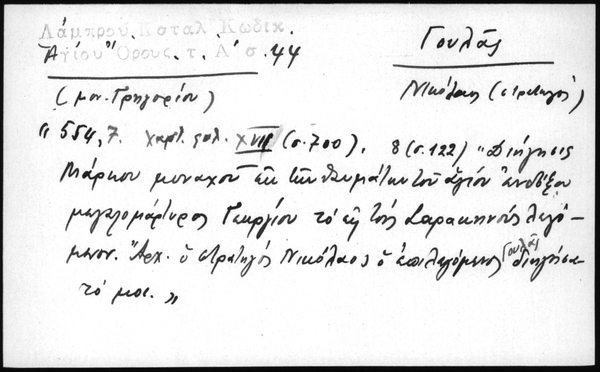 Λάμπρου. Καταλ Κωδικ.
Ἁγίου Ὄρους. τ. Α' σ. 44
Γουλᾶς
(μον. Γρηγορίου)
Νικόλαος (στρατηγὸς)
"554, 7. χαρτ. XVII (σ. 700). 8 (σ. 122) "Διήγησις
Μάρκου μοναχοῦ ἐκ τῶν θαυμάτων τοῦ ἁγίου ἐνδόξου
μεγαλομάρτυρος Γεωργίου τὸ εἰς τοὺς Σαρακηνοὺς λεγό-
μενον. "Αρχ. ὁ στρατηγὸς Νικόλαος ὁ ἐπιλεγόμενος Γουλᾶς διηγήσα-
τό μοι. "